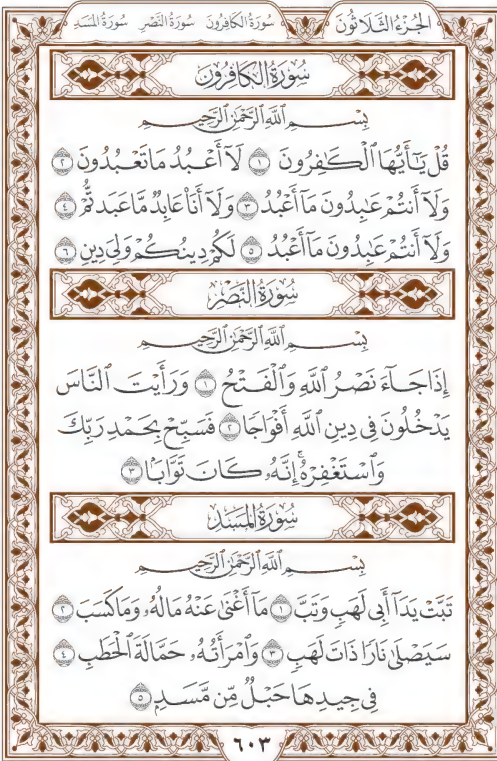 الجُزْءُ الثَّلَاثُونَ سُورَةُ الكَافِرُونَ سُورَةُ النَّصْرِ سُورَةُ المَسَدِ
سُورَةُ الكَافِرُونَ
بِسْمِ ٱللَّهِ ٱلرَّحْمَٰنِ ٱلرَّحِيمِ
قُلْ يَـٰٓأَيُّهَا ٱلْكَـٰفِرُونَ ١ لَآ أَعْبُدُ مَا تَعْبُدُونَ ٢
وَلَآ أَنتُمْ عَـٰبِدُونَ مَآ أَعْبُدُ ٣ وَلَآ أَنَا۠ عَابِدٌ مَّا عَبَدتُّمْ ٤
وَلَآ أَنتُمْ عَـٰبِدُونَ مَآ أَعْبُدُ ٥ لَكُمْ دِينُكُمْ وَلِىَ دِينِ ٦
سُورَةُ النَّصْرِ
بِسْمِ ٱللَّهِ ٱلرَّحْمَٰنِ ٱلرَّحِيمِ
إِذَا جَآءَ نَصْرُ ٱللَّهِ وَٱلْفَتْحُ ١ وَرَأَيْتَ ٱلنَّاسَ
يَدْخُلُونَ فِى دِينِ ٱللَّهِ أَفْوَاجًا ٢ فَسَبِّحْ بِحَمْدِ رَبِّكَ
وَٱسْتَغْفِرْهُ ۚ إِنَّهُۥ كَانَ تَوَّابًۢا ٣
سُورَةُ المَسَدِ
بِسْمِ ٱللَّهِ ٱلرَّحْمَٰنِ ٱلرَّحِيمِ
تَبَّتْ يَدَآ أَبِى لَهَبٍ وَتَبَّ ١ مَآ أَغْنَىٰ عَنْهُ مَالُهُۥ وَمَا كَسَبَ ٢
سَيَصْلَىٰ نَارًا ذَاتَ لَهَبٍ ٣ وَٱمْرَأَتُهُۥ حَمَّالَةَ ٱلْحَطَبِ ٤
فِى جِيدِهَا حَبْلٌ مِّن مَّسَدٍۭ ٥
٦٠٣